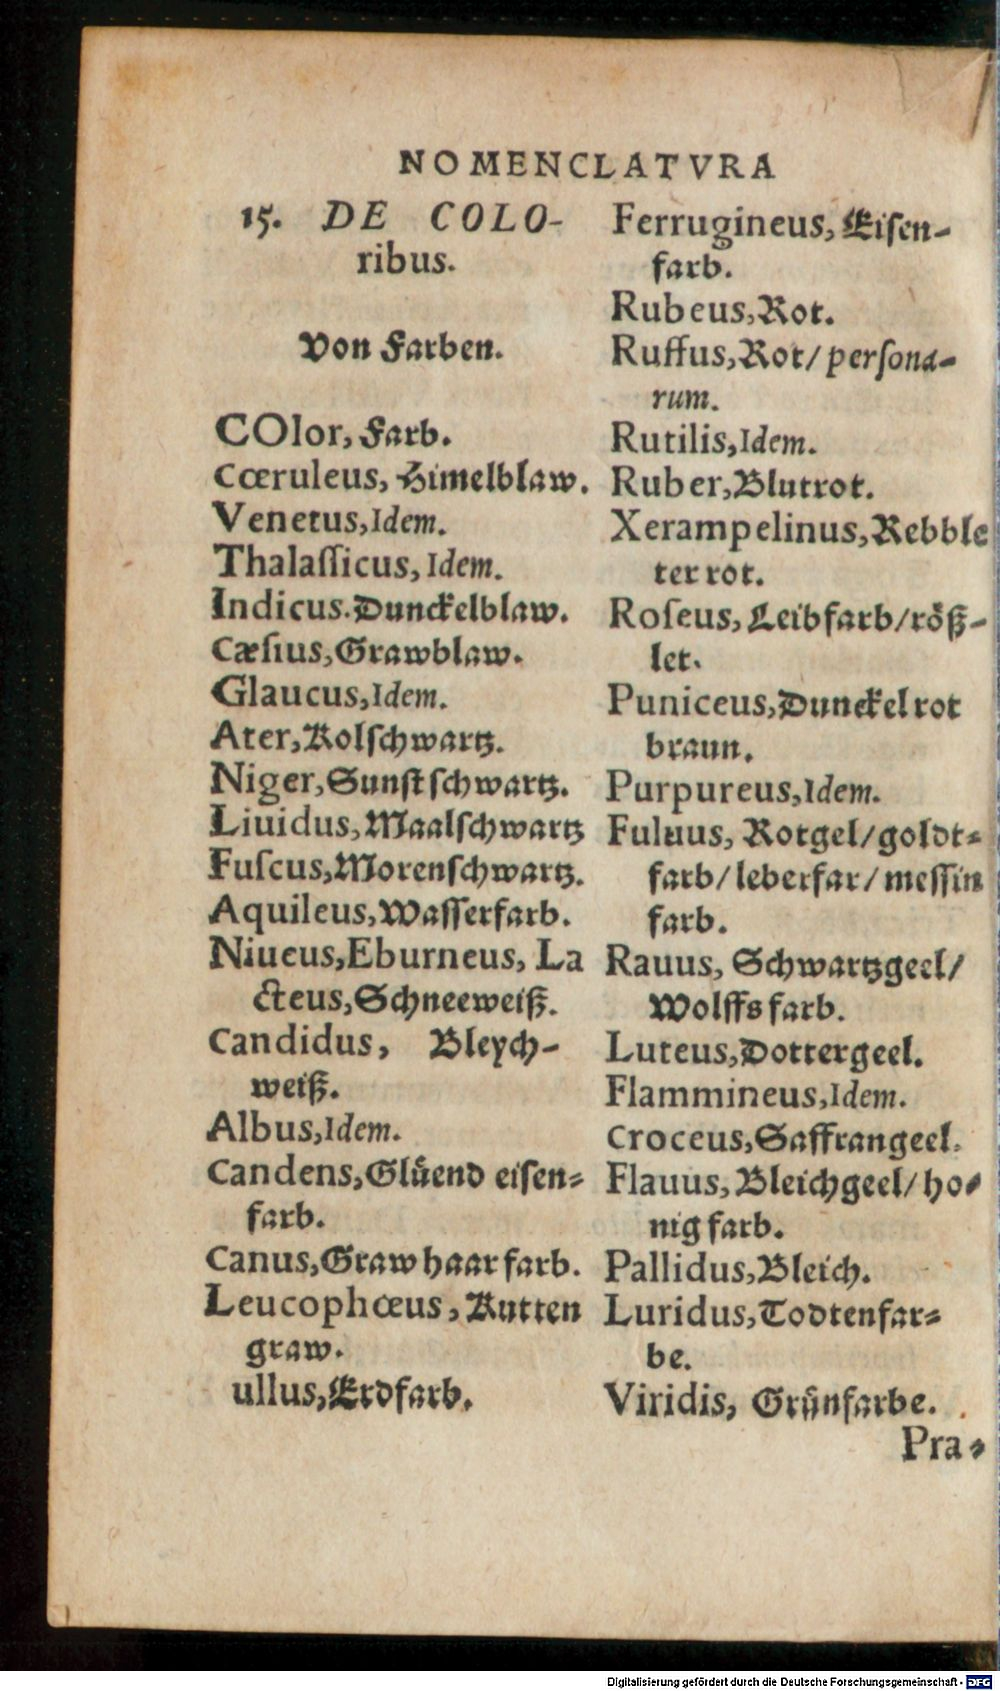 NOMENCLATVRA
15. DE COLO-
ribus.
Von Farben.
COlor, Farb.
Cœruleus, Himelblaw.
Venetus, Idem.
Thalaſſicus, Idem.
Indicus. Dunckelblaw.
Cæſius, Grawblaw.
Glaucus, Idem.
Ater, Kolſchwartz.
Niger, Sunſtſchwartz.
Liuidus, Maalſchwartz
Fuſcus, Morenſchwartz.
Aquileus, Waſſerfarb.
Niueus, Eburneus, La
cteus, Schneeweiß.
Candidus, Bleych-
weiß.
Albus, Idem.
Candens, Glüend eiſen-
farb.
Canus, Graw haar farb.
Leucophœus, Kutten
graw.
ullus, Erdfarb.
Ferrugineus, Eiſen-
farb.
Rubeus, Rot.
Ruffus, Rot/ perſona-
rum.
Rutilis, Idem.
Ruber, Blutrot.
Xerampelinus, Rebble
ter rot.
Roſeus, Leibfarb/ rößz-
let.
Puniceus, Dunckel rot
braun.
Purpureus, Idem.
Fuluus, Rotgel/ goldt-
farb/ leberfar/ meſſin
farb.
Rauus, Schwartzgeel/
Wolffs farb.
Luteus, Dottergeel.
Flammineus, Idem.
Croceus, Saffrangeel.
Flauus, Bleichgeel/ ho-
nig farb.
Pallidus, Bleich.
Luridus, Todtenfar-
be.
Viridis, Grünfarbe.
Pra-
Digitalisierung gefördert durch die Deutsche Forschungsgemeinschaft - DFG